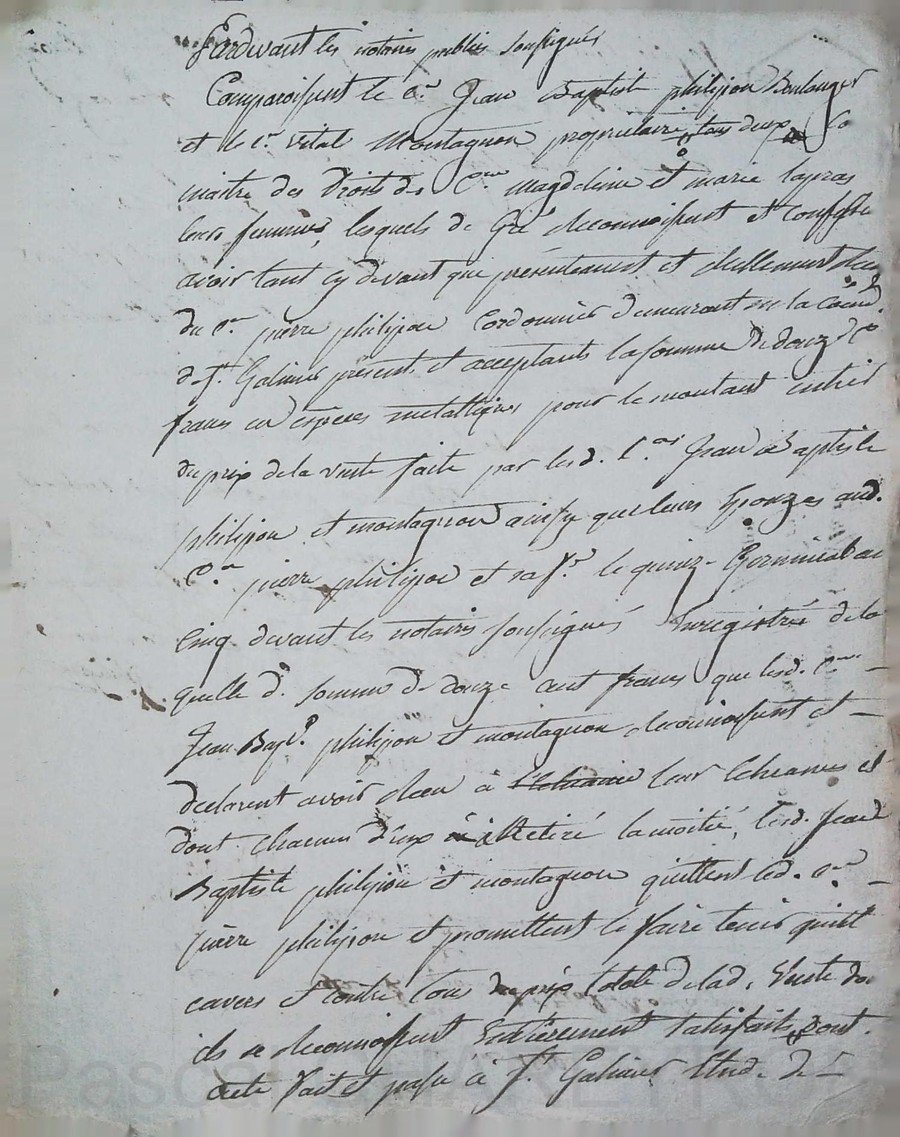 Pardevant les notaires publics soussignés
Comparoissent le C.en Jean Baptiste philipon Boulanger
et le C.en vital Montagnon propriétaire, tous deux Co
maitre des Droits des C.nes Magdeleine et marie lapras
leurs femmes, lesquels de Gré reconnoissent et confessent
avoir tant cy devant que présentement et réellement Reçu
du C.en pierre philipon Cordonnier demeurant en la Comm.
de S.t Galmier présent et acceptants la somme de douze C.t
francs en espèces metalliques pour le montant entier
du prix de la vente faite par lesd. C.ens Jean Baptiste
philipon et montagnon ainsy que leurs Epouzes aud.
C.en pierre philipon et sa f.e le quinze Germinal an
Cinq devant les notaires soussignés Enregistrée de la
quelle d. somme de douze cent francs que lesd. C.ens
Jean Bap.te philipon et montagnon reconnoissent et
declarent avoir Reçu à leur Echeance et
dont chacun d'eux a Retiré la moitié, lesd. Jean
Baptiste philipon et montagnon quittent led. C.en
pierre philipon et promettent le faire tenir quitte
envers et contre tous du prix total de lad. Vente do
ils se reconnoissent Entièrement satisfaits, Dont
acte fait et passé à S.t Galmier Etud. De
Pasca